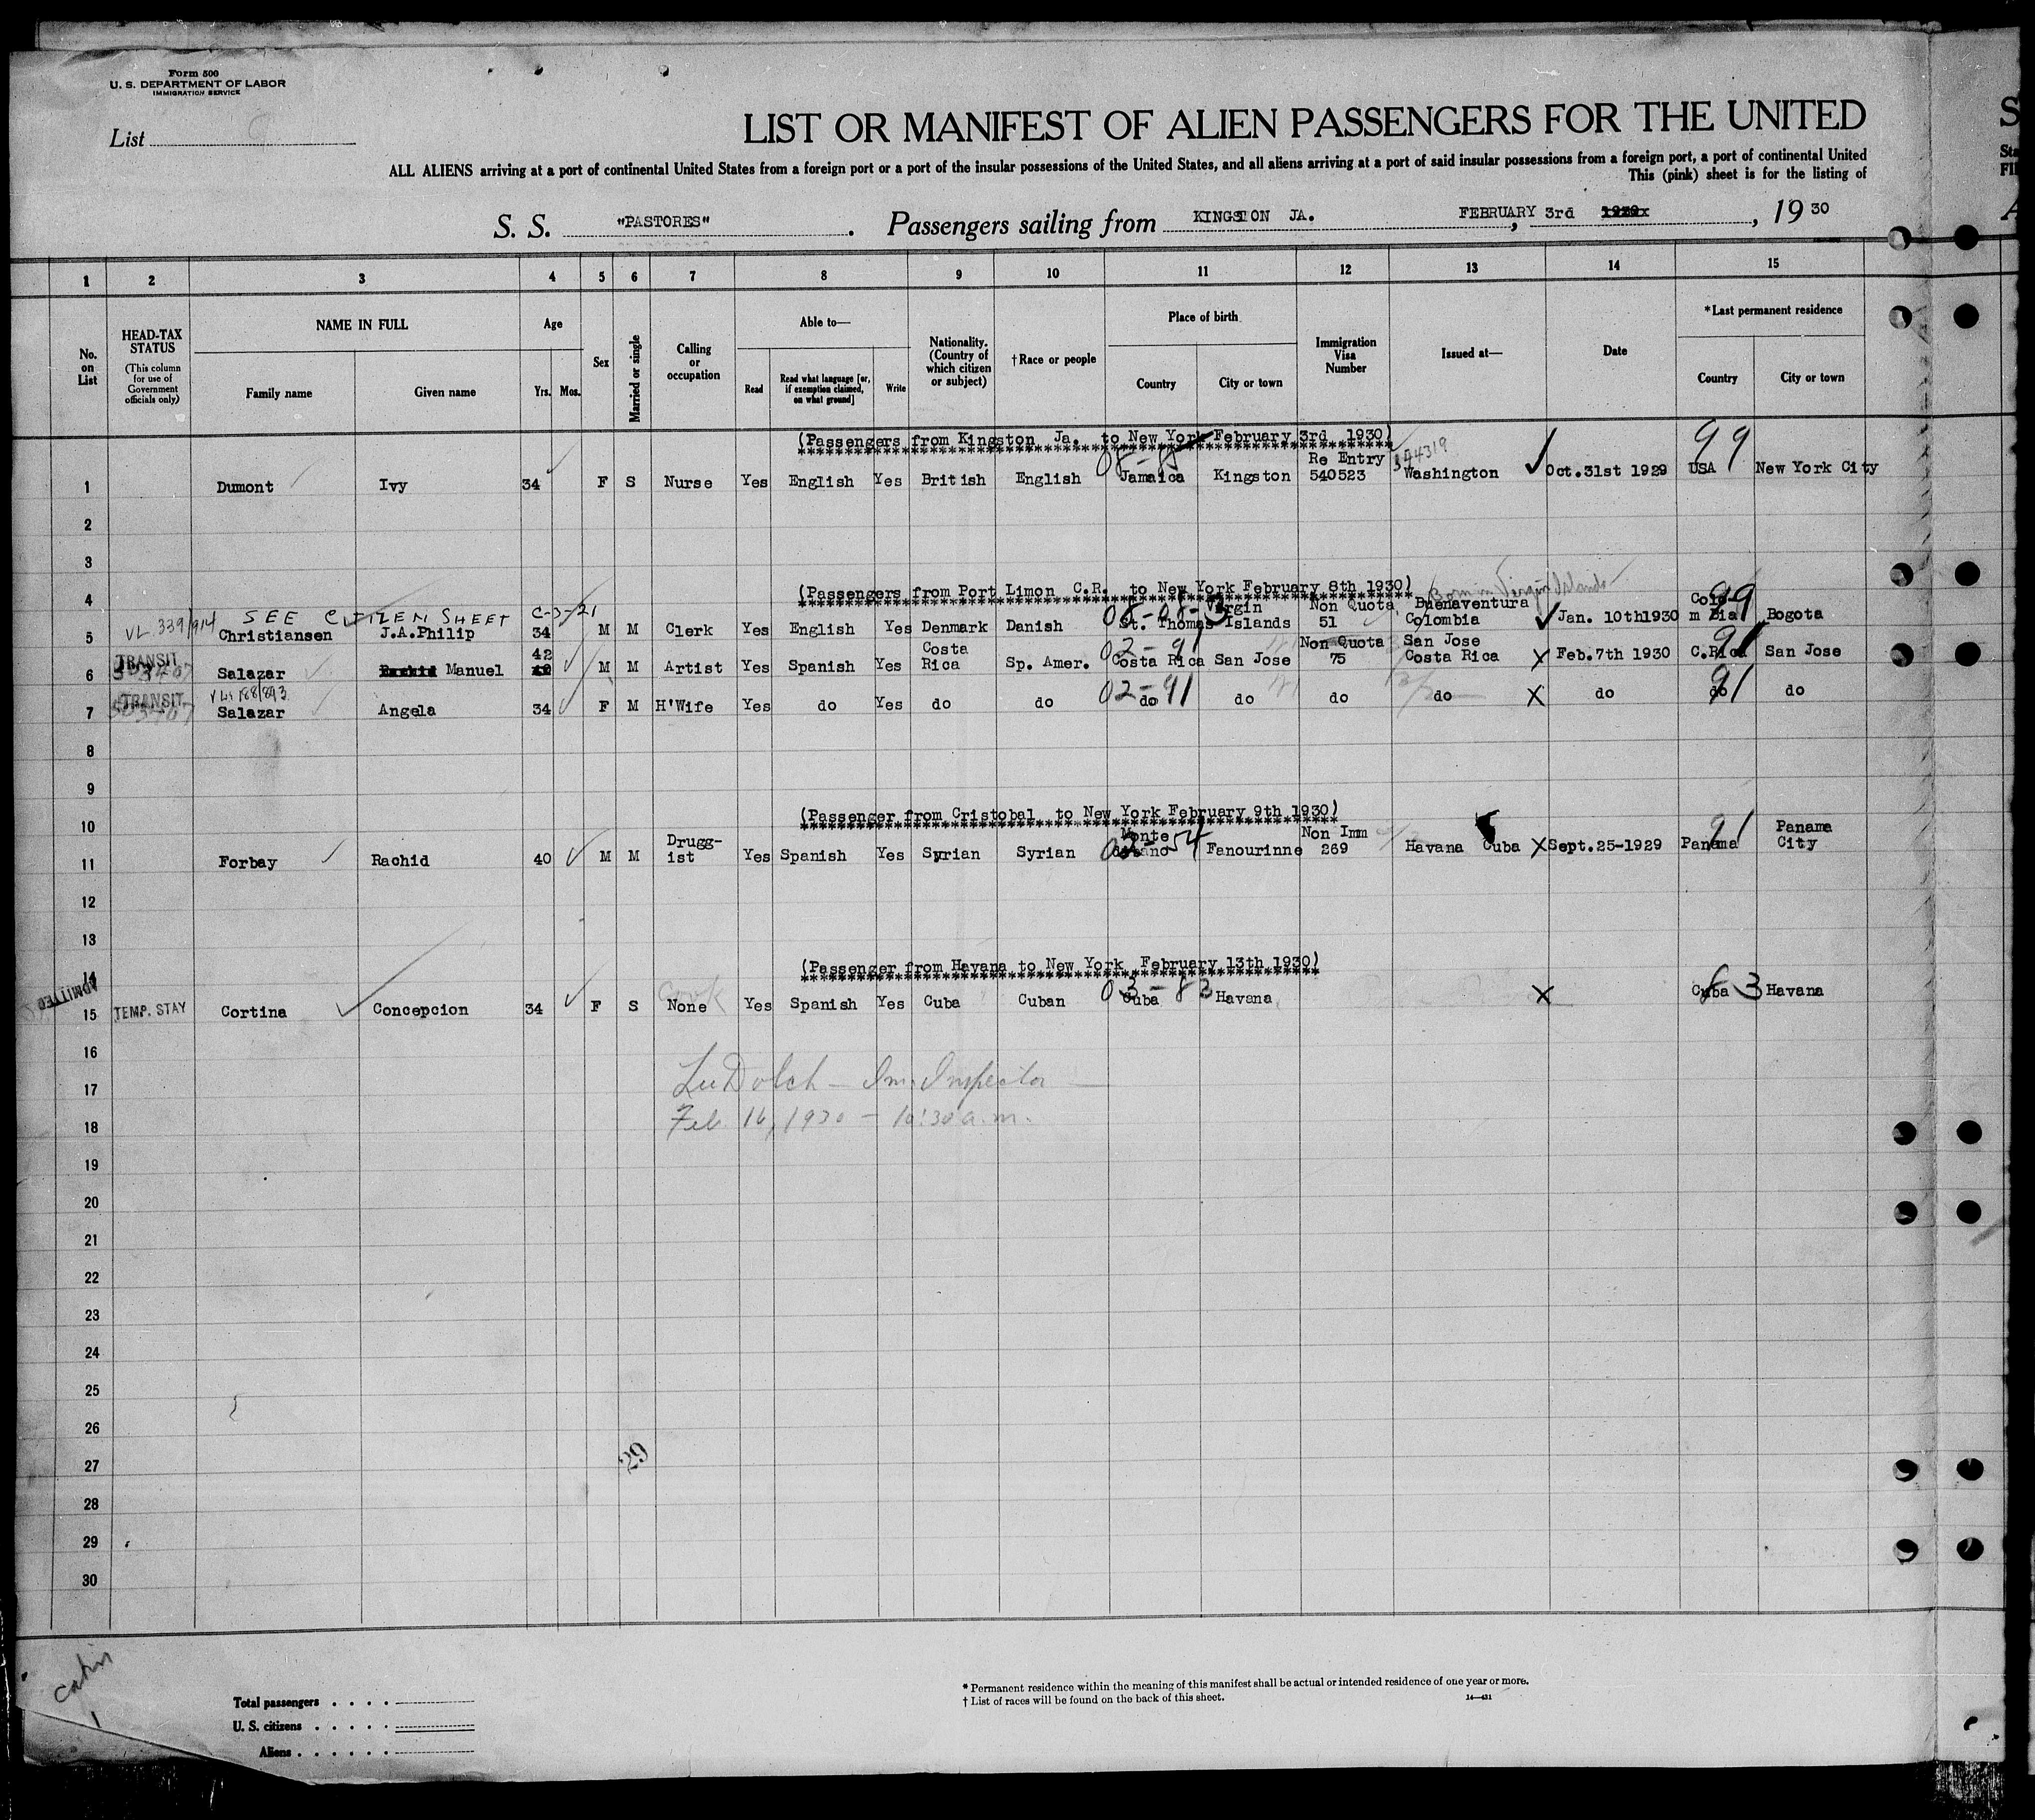 Form 500
U. S. DEPARTMENT OF LABOR
IMMIGRATION SERVICE
List
LIST OR MANIFEST OF ALIEN PASSENGERS FOR THE UNITED
ALL ALIENS arriving at a port of continental United States from a foreign port or a port of the insular possessions of the United States, and all aliens arriving at a port of said insular possessions from a foreign port, a port of continental United
This (pink) sheet is for the listing of
S. S. "PASTORES". Passengers sailing from KINGSTON JA. , FEBRUARY 3rd , 19 30
1 2 3 4 5 6 7 8 9 10 11 12 13 14 15
No. on List
HEAD-TAX STATUS (This column for use of Government officials only)
NAME IN FULL
Family name Given name
Age
Yrs. Mos.
Sex
Married or single
Calling or occupation
Able to—
Read
Read what language [or, if exemption claimed, on what ground]
Write
Nationality. (Country of which citizen or subject)
†Race or people
Place of birth
Country City or town
Immigration Visa Number
Issued at—
Date
*Last permanent residence
Country City or town
(Passengers from Kingston Ja. to New York February 3rd 1930)
1 Dumont Ivy 34 F S Nurse Yes English Yes British English Jamaica Kingston Re Entry 540523 Washington Oct.31st 1929 USA New York City
99
2
3
4 (Passengers from Port Limon C.R. to New York February 8th 1930) Born in Virgin Islands
SEE CITIZEN SHEET C-3-21
VL 339/914
5 Christiansen J.A.Philip 34 M M Clerk Yes English Yes Denmark Danish St. Thomas Virgin Islands Non Quota 51 Buenaventura Colombia Jan. 10th1930 Colo m bia Bogota
TRANSIT
6 Salazar Manuel 42 M M Artist Yes Spanish Yes Costa Rica Sp. Amer. Costa Rica San Jose Non Quota 75 San Jose Costa Rica X Feb.7th 1930 C.Rica San Jose
02-91 91
TRANSIT
7 Salazar Angela 34 F M H'Wife Yes do Yes do do do do do do X do do do
02-91 91
8
9
10 (Passenger from Cristobal to New York February 9th 1930)
11 Forbay Rachid 40 M M Drugg-ist Yes Spanish Yes Syrian Syrian Monte Fanourinne Non Imm 269 Havana Cuba X Sept.25-1929 Panama Panama City
91
12
13
14 (Passenger from Havana to New York February 13th 1930)
ADMITTED
15 TEMP. STAY Cortina Concepcion 34 F S None Yes Spanish Yes Cuba Cuban Cuba Havana X Cuba Havana
Cook 03-83 83
16
17 Im. Inspector
18 Feb 16, 1930 - 10:30 a.m.
19
20
21
22
23
24
25
26
27 29
28
29
30
Cabin
1
Total passengers
U. S. citizens
Aliens
* Permanent residence within the meaning of this manifest shall be actual or intended residence of one year or more.
† List of races will be found on the back of this sheet. 14—431